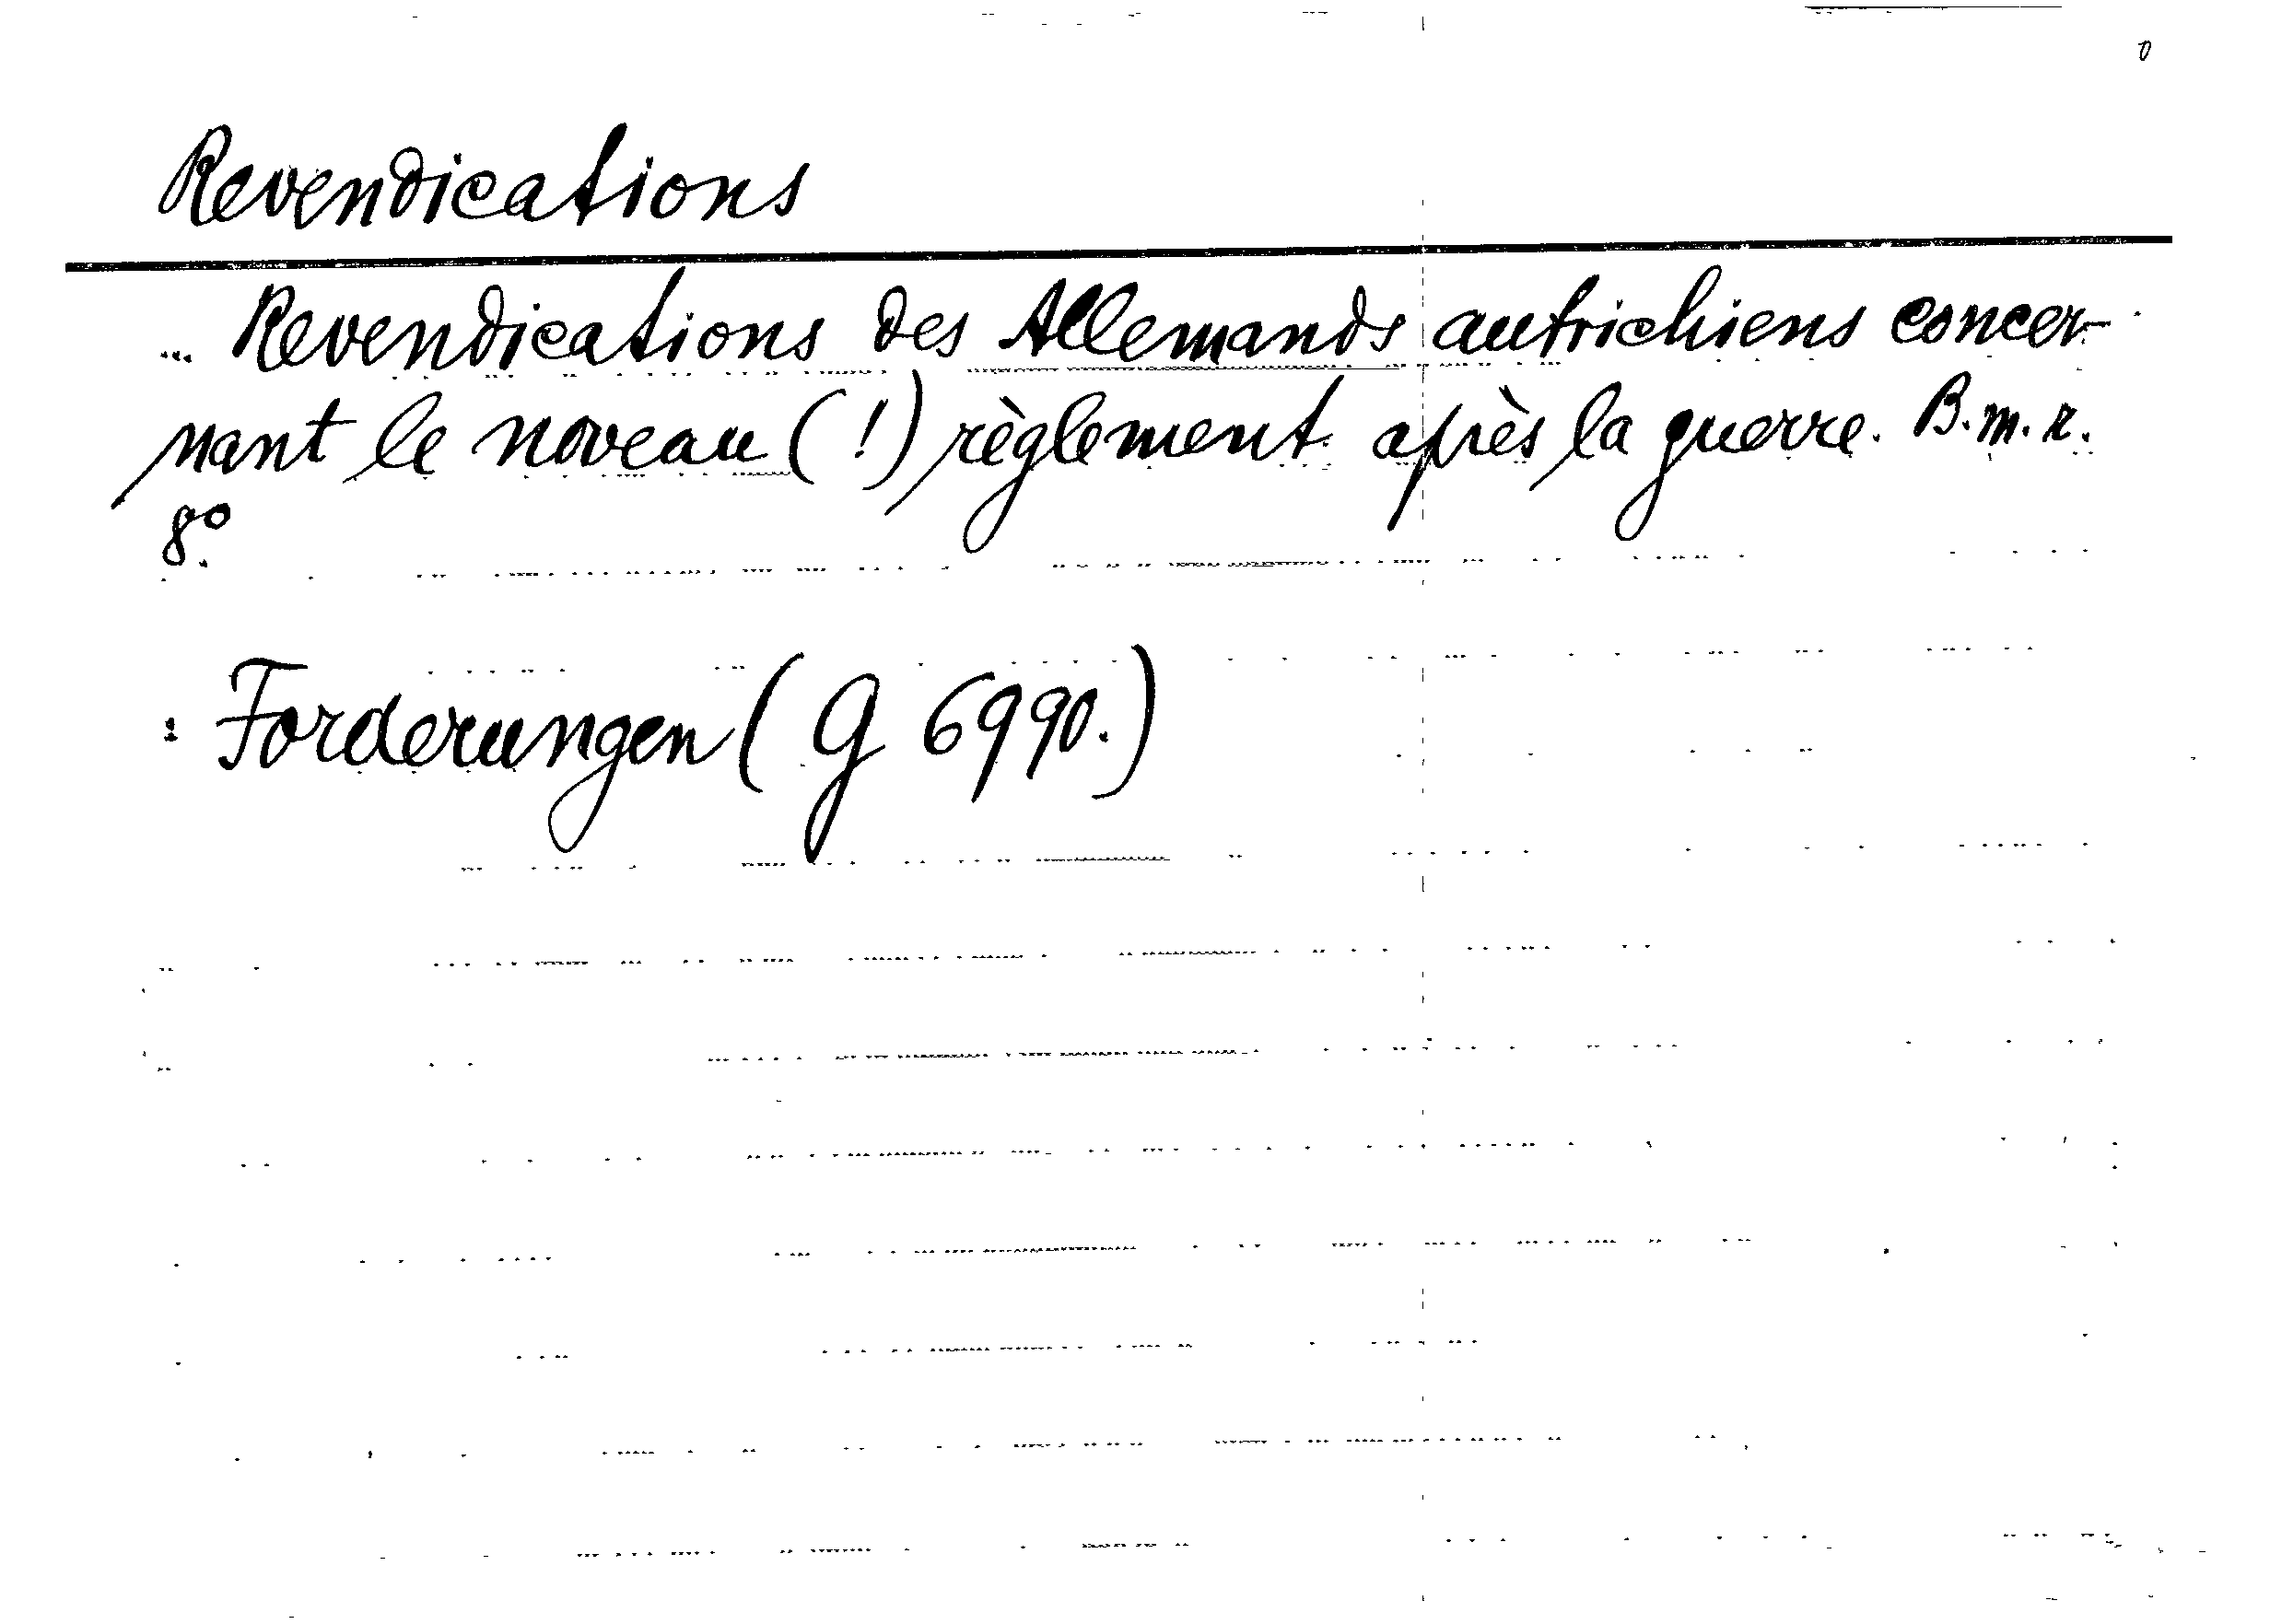 0
Revendications
... Revendications des Allemands autrichiens concer-
nant le noveau (!) règlement après la guerre. B. m. r.
8°.
: Forderungen (G 6990.)